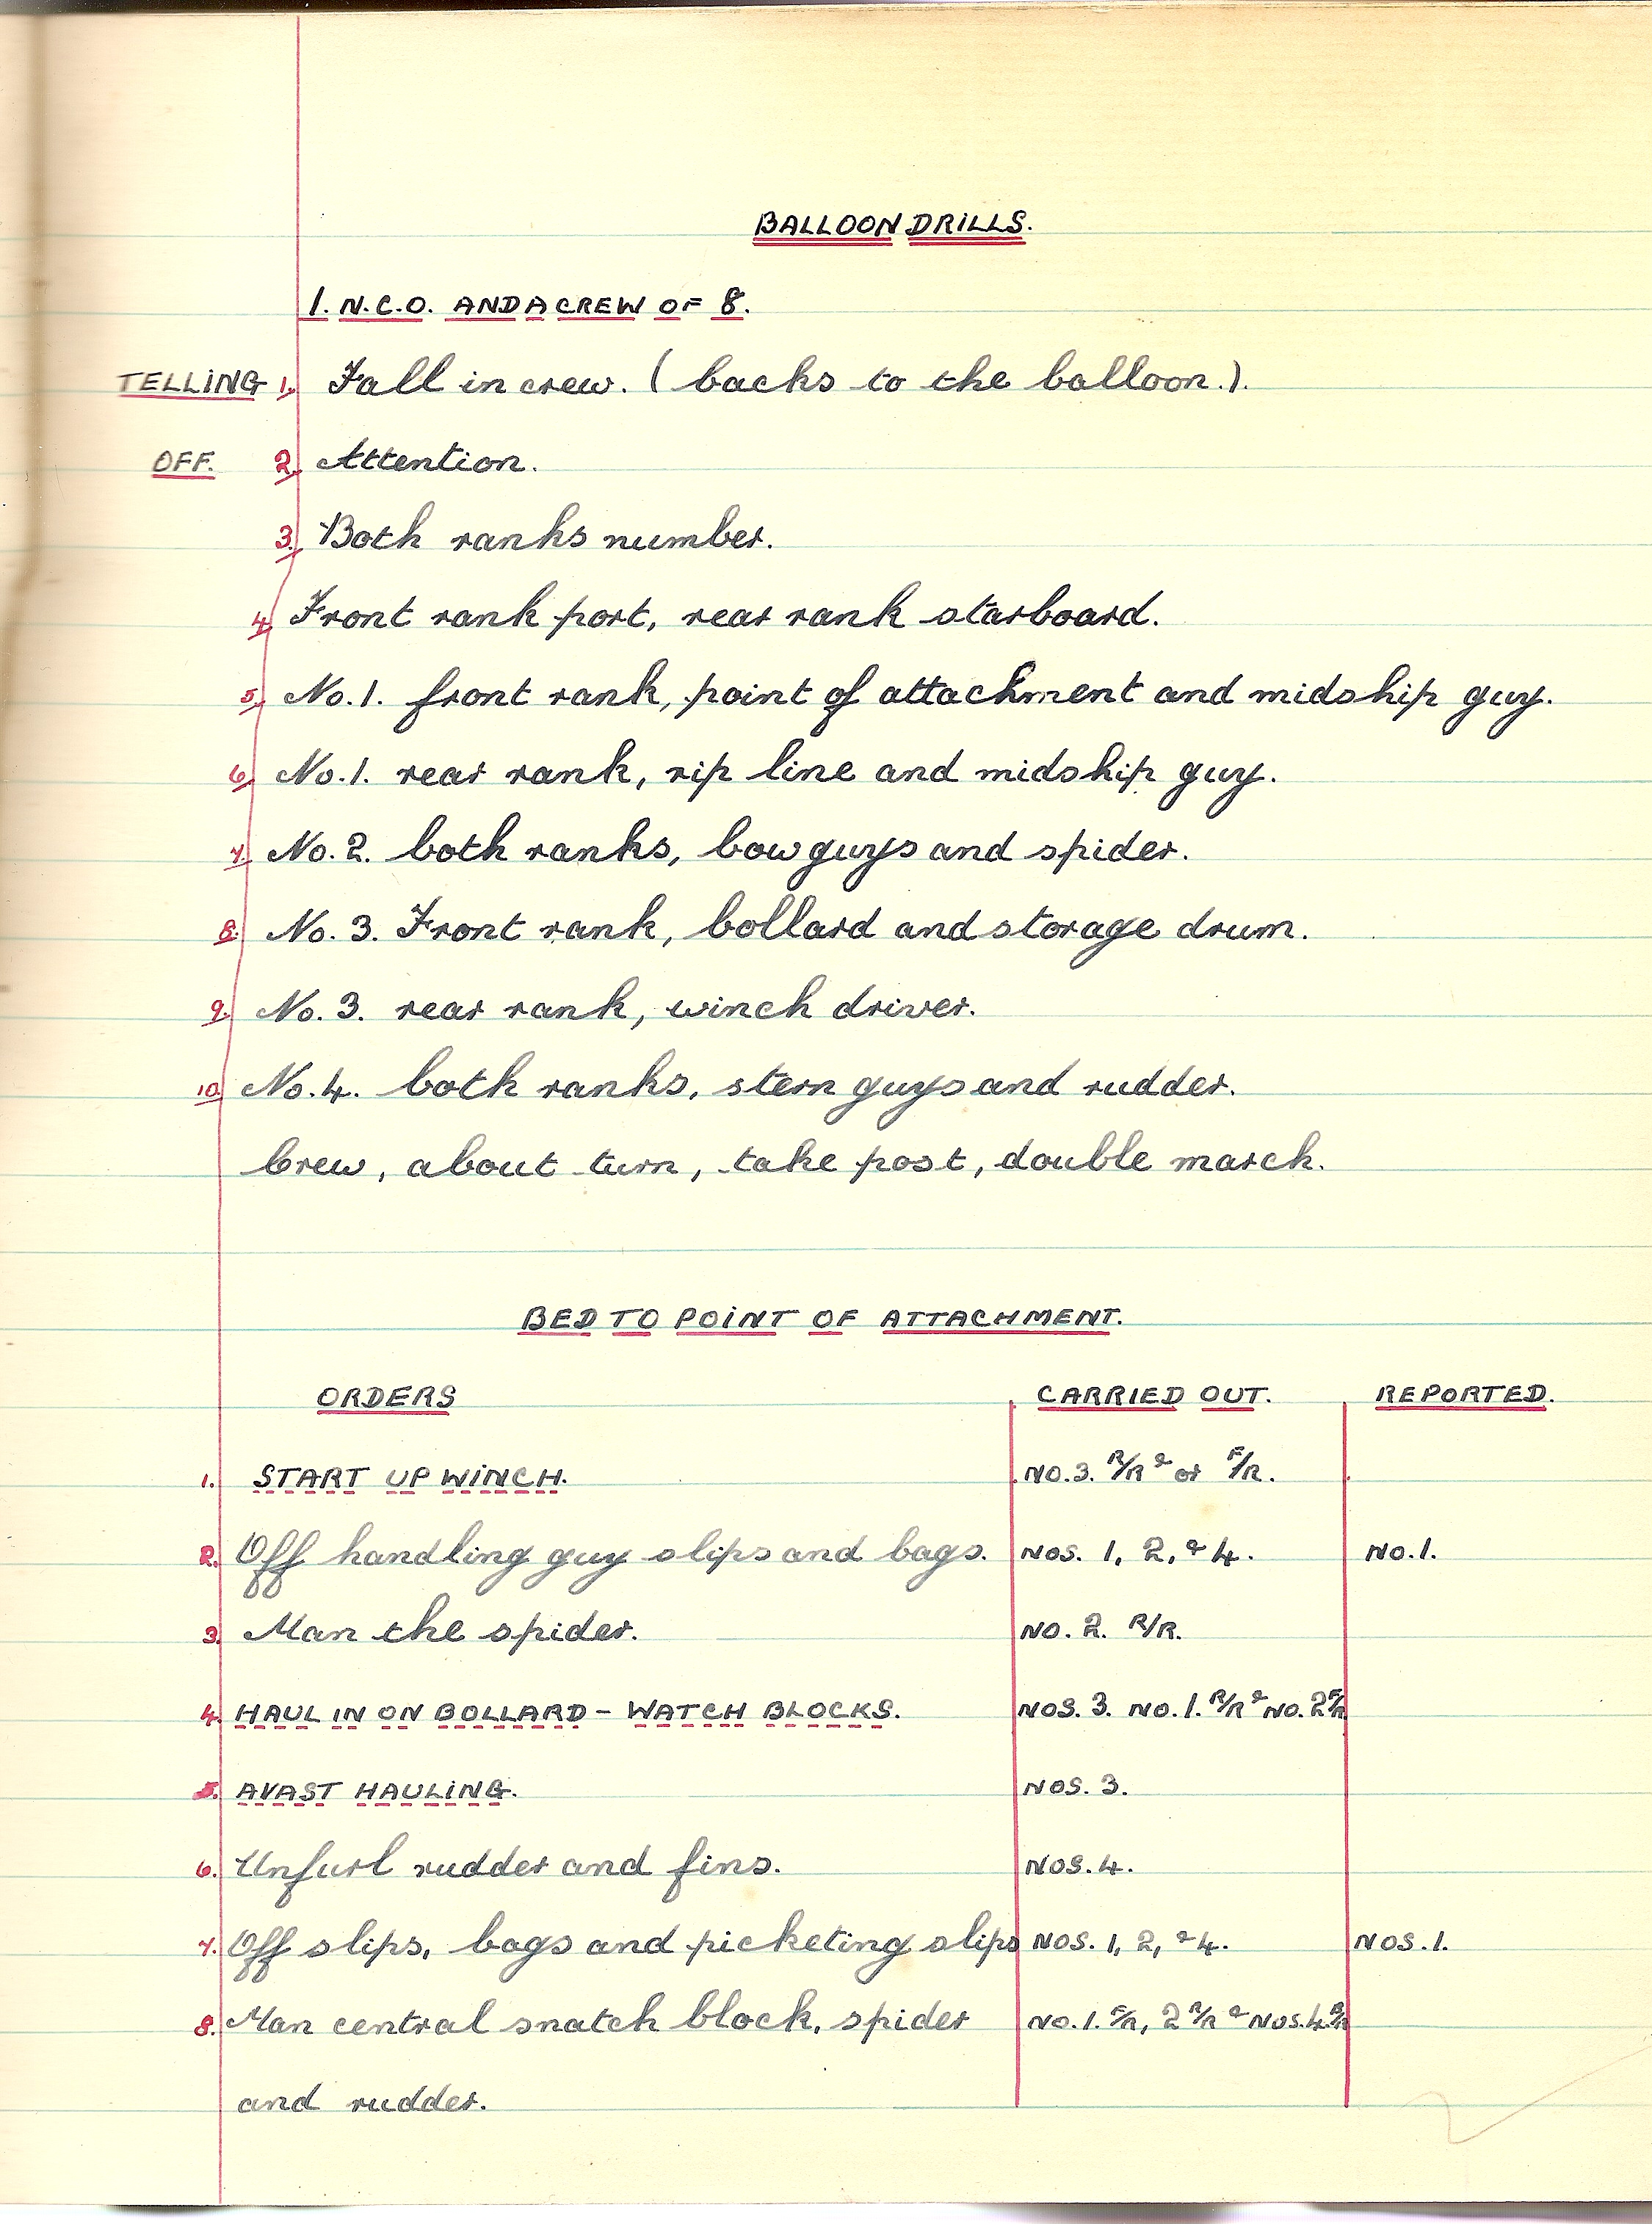 BALLOON DRILLS.
1. N.C.O. AND A CREW OF 8.
TELLING 1. Fall in crew. (backs to the balloon.).
OFF. 2. Attention.
3. Both ranks number.
4. Front rank port, rear rank starboard.
5. No. 1. front rank, point of attachment and midship guy.
6. No. 1. rear rank, rip line and midship guy.
7. No. 2. both ranks, bow guys and spider.
8. No. 3. Front rank, bollard and storage drum.
9. No. 3. rear rank, winch driver.
10. No. 4. both ranks, stern guys and rudder.
Crew, about turn, take post, double march.
BED TO POINT OF ATTACHMENT.
ORDERS CARRIED OUT. REPORTED.
1. START UP WINCH. NO. 3. R/R & or F/R.
2. Off handling guy slips and bags. NOS. 1, 2, & 4. NO. 1.
3. Man the spider. NO. 2. R/R.
4. HAUL IN ON BOLLARD - WATCH BLOCKS. NOS. 3. NO. 1. R/R & NO. 2 F/R
5. AVAST HAULING. NOS. 3.
6. Unfurl rudder and fins. NOS. 4.
7. Off slips, bags and picketing slips NOS. 1, 2, & 4. NOS. 1.
8. Man central snatch block, spider NO. 1. F/R, 2 R/R & NOS. 4.
and rudder.